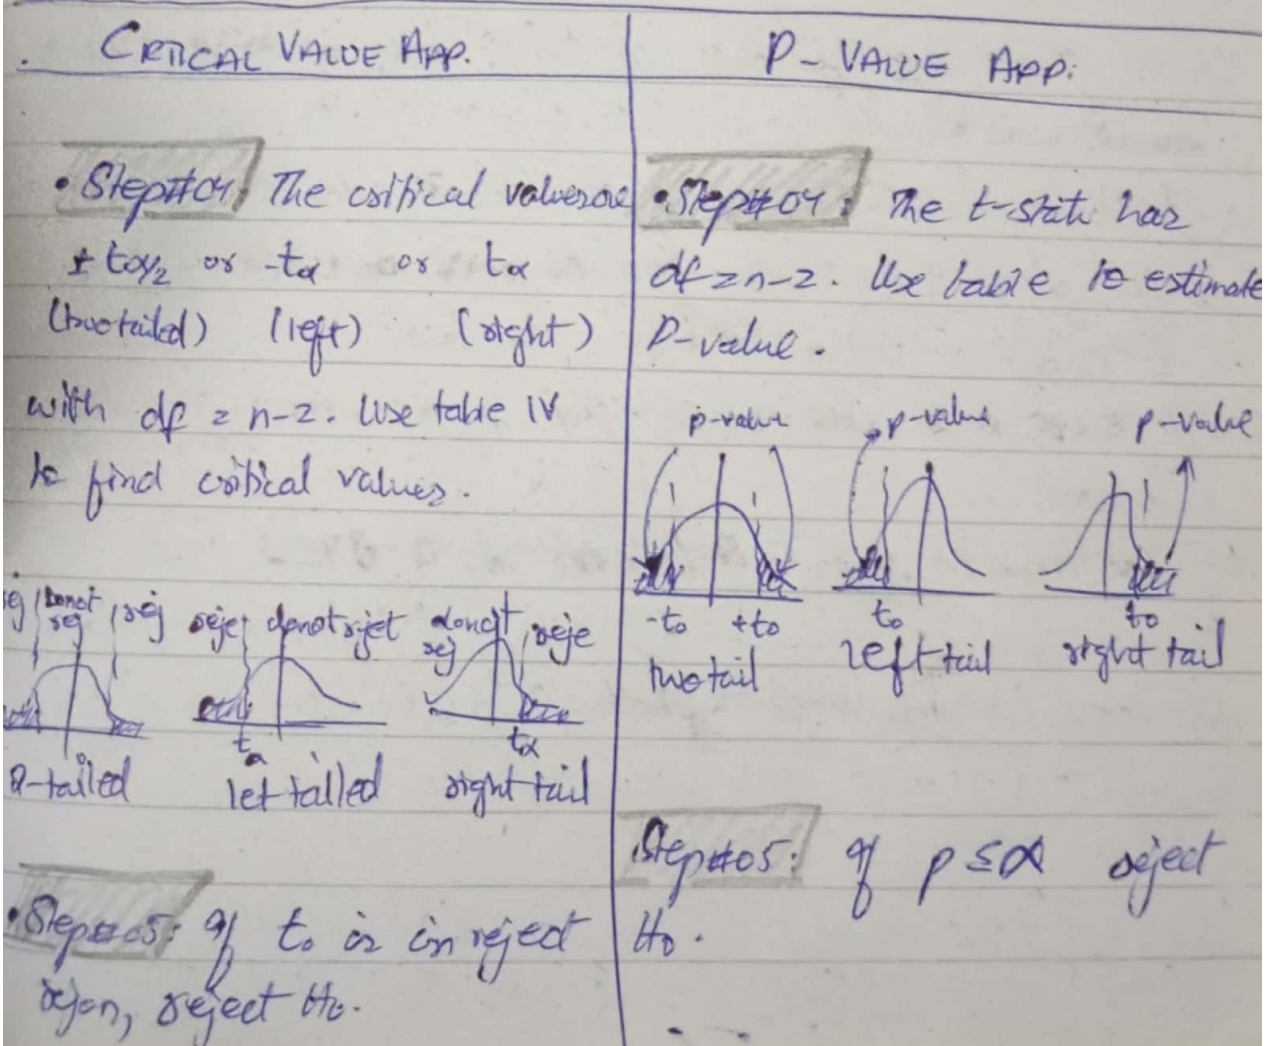 CRTICAL VALUE APP.
• Step#04: The critical values are
± tα/2 or -tα or tα
(two tailed) (left) (right)
with df = n-2. Use table IV
to find critical values.
rej Donot rej rej
reje donot rejet
donot rej reje
tα
tα
2-tailed left tailled right tail
• Step#05: If t₀ is in reject
rejon, reject H₀.
P- VALUE APP:
• Step#04: The t-stat has
df = n-2. Use table to estimate
P-value.
p-value p-value p-value
-t₀ +t₀ t₀ t₀
two tail left tail right tail
Step#05: If p ≤ α reject
H₀.